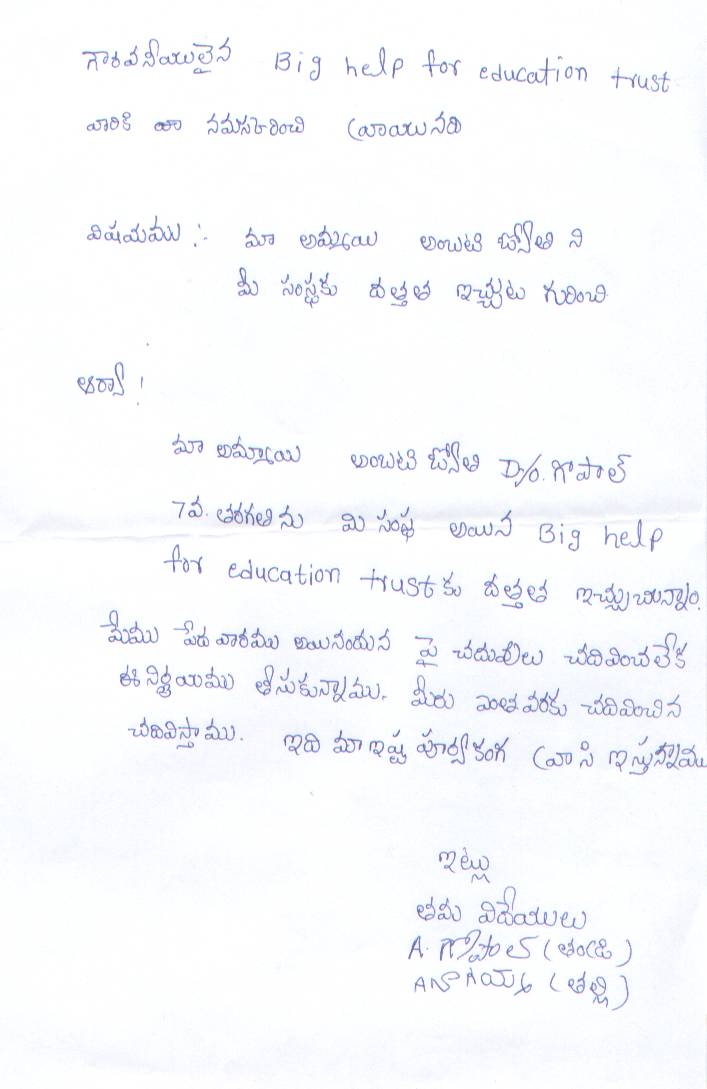 గౌరవనీయులైన Big help for education trust
వారికి మా నమస్కరించి వ్రాయునది
విషయము :- మా అమ్మాయి అంబటి జ్యోతి ని
మీ సంస్థకు దత్తత ఇచ్చుట గురించి
ఆర్యా!
మా అమ్మాయి అంబటి జ్యోతి D/o. గోపాల్
7వ. తరగతిను మి సంస్థ అయిన Big help
for education trust కు దత్తత ఇచ్చుచున్నాం.
మేము పేద వారము అయినందున పై చదువులు చదివించలేక
ఈ నిర్ణయము తీసుకున్నాము. మీరు ఎంత వరకు చదివించిన
చదివిస్తాము. ఇది మా ఇష్ట పూర్వకంగ వ్రాసి ఇస్తున్నాము
ఇట్లు
తమ విదేయులు
A. గోపాల్ (తండ్రి)
(తల్లి)